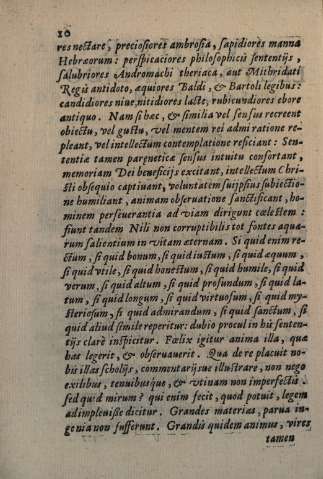 10
res nectare, preciosiores ambrosia, sapidiores manna
Hebræorum: perspicaciores philosophicis sententijs,
salubriores Andromachi theriaca, aut Mithridati
Regis antidoto, æquiores Baldi, & Bartoli legibus:
candidiores niue, nitidiores lacte, rubicundiores ebore
antiquo. Nam si hæc, & similia vel sensus recreent
obiectu, vel gustu, vel mentem rei admiratione re-
pleant, vel intellectum contemplatione reficiant: Sen-
tentiæ tamen paræneticæ sensus intuitu confortant,
memoriam Dei beneficijs excitant, intellectum Chri-
sti obsequio captiuant, voluntatem suijpsius subiectio-
ne humiliant, animam obseruatione sanctificant, ho-
minem perseuerantia ad viam dirigunt cœlestem:
fiunt tandem Nili non corruptibilis tot fontes aqua-
rum salientium in vitam æternam. Si quid enim re-
ctum, si quid bonum, si quid iustum, si quid æquum,
si quid vtile, si quid honestum, si quid humile, si quid
verum, si quid altum, si quid profundum, si quid la-
tum, si quid longum, si quid virtuosum, si quid my-
steriosum, si quid admirandum, si quid sanctum, si
quid aliud simile reperitur: dubio procul in his senten-
tijs clarè inspicitur. Fœlix igitur anima illa, quæ
has legerit, & obseruauerit. Qua de re placuit no-
bis illas scholijs, commentarijsue illustrare, non nego
exilibus, tenuibusque, & vtinam non imperfectis:
sed quid mirum? qui enim fecit, quod potuit, legem
adimpleuisse dicitur. Grandes materias, parua in-
genia non sufferunt. Grandis quidem animus, vires
tamen